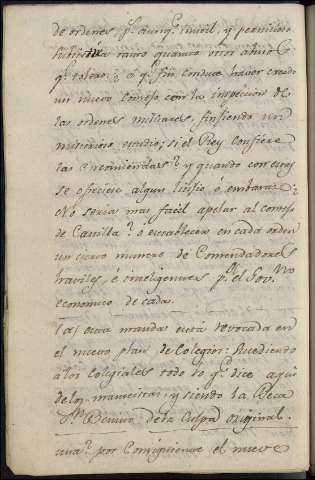 de ordenes, p.ª aunq.e inutil, y permitiera
tantos otros abusos q.e
q.e tolero: ¿ a q.e fin conduce haver creado
un nuevo consejo con la inspeccion de
las ordenes militares, fingiendo un
misterioso estudio; si el Rey confiere
las Encomiendas? y quando con estas
se ofreciese algun litisio ó embarazo:
No seria mas facil apelar al consejo
de Castilla? ó establecer en cada orden
un cierto numero de Comendadores
haviles, é inteligentes p.ª el Gov.no
economico de cada.
(a) Otra manda està revocada en
el nuevo plan de Colegios: sucediendo
á los colegiales todo lo q.e dice aqui
de los manteistas, y siendo la Beca
S.to Deuuo dela Culpa original.
una? por Consiguiente el nueve